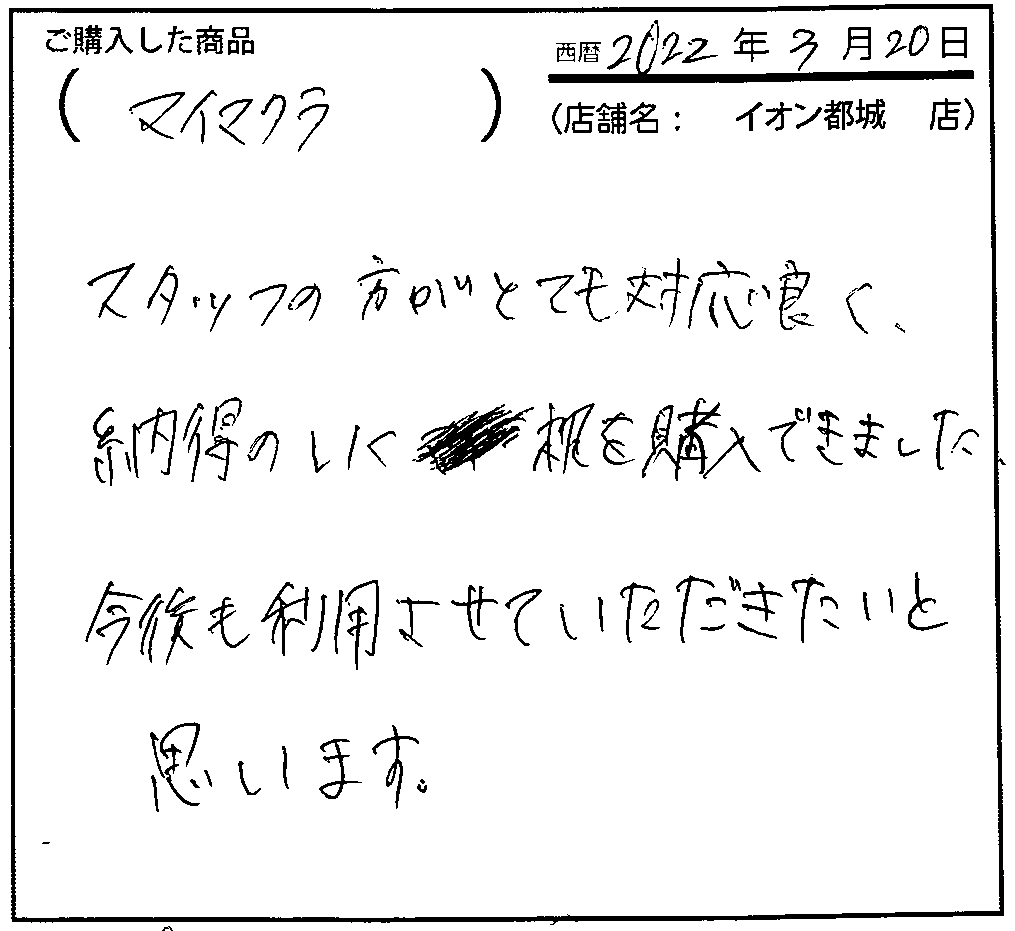 ご購入した商品
西暦 2022 年 3 月 20 日
( マイマクラ )
(店舗名： イオン都城 店)
スタッフの方がとても対応良く、
納得のいく 枕を購入できました、
今後も利用させていただきたいと
思います。